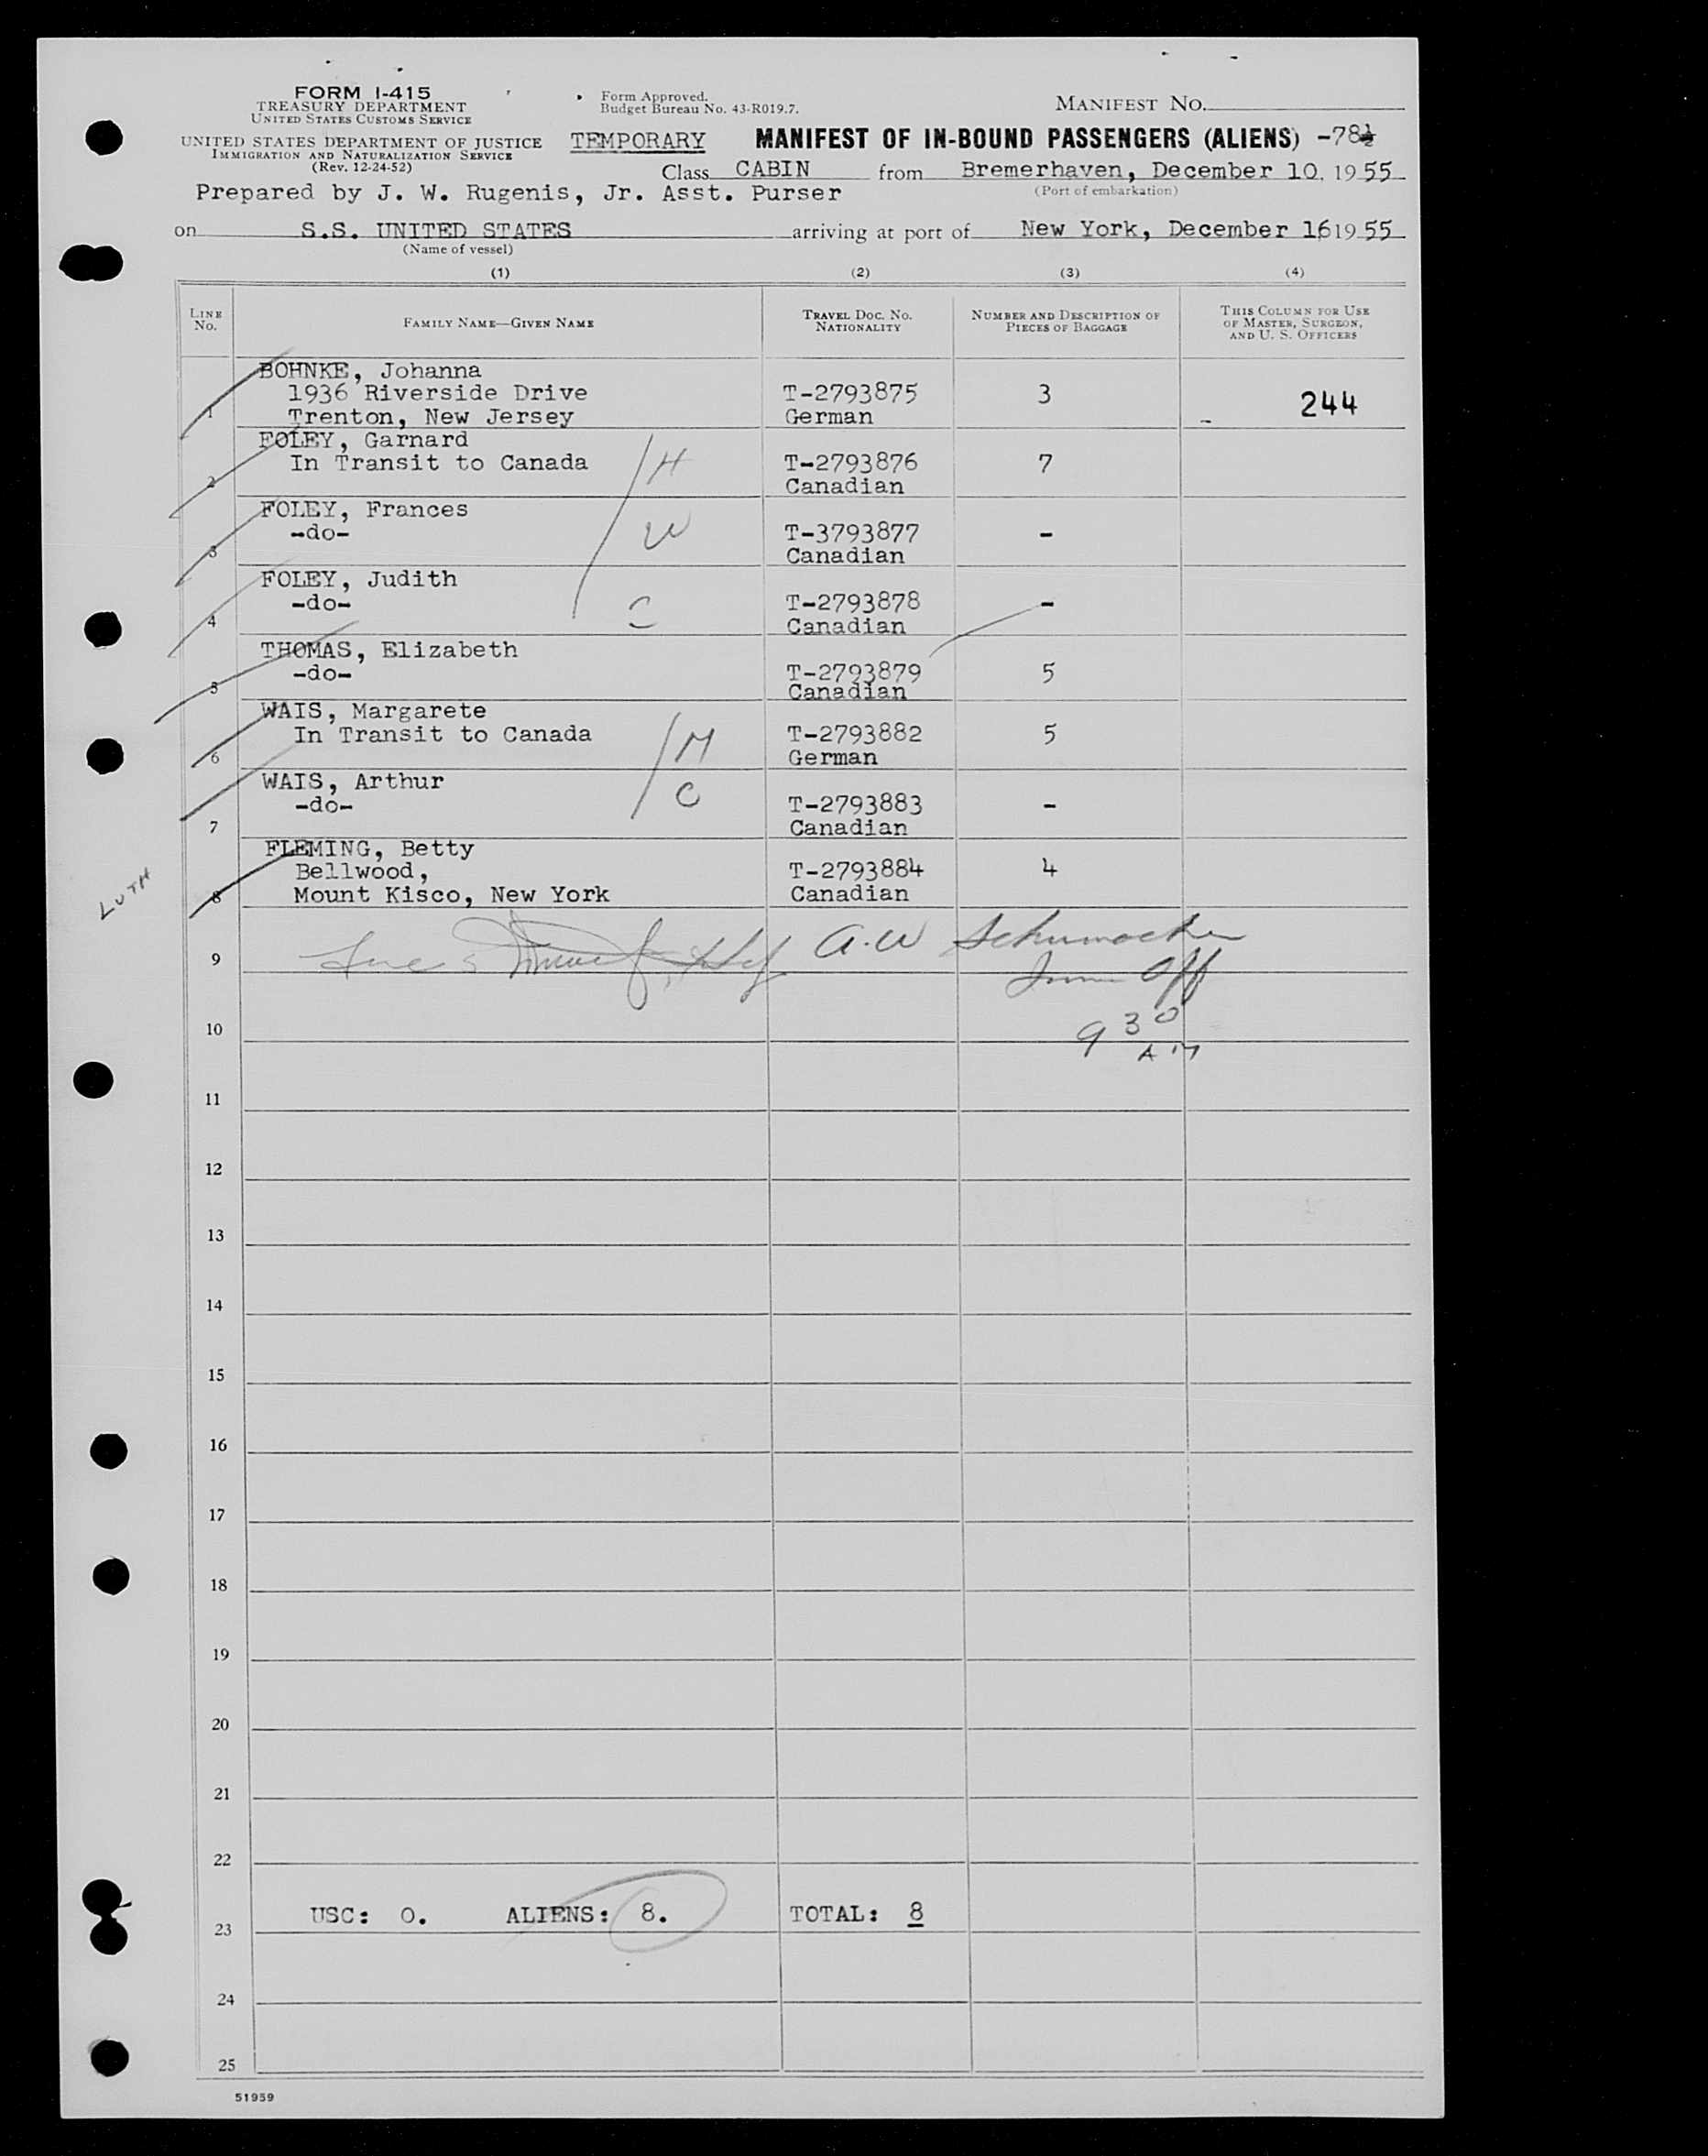 FORM I-415
TREASURY DEPARTMENT
UNITED STATES CUSTOMS SERVICE
UNITED STATES DEPARTMENT OF JUSTICE
IMMIGRATION AND NATURALIZATION SERVICE
(Rev. 12-24-52)
Form Approved.
Budget Bureau No. 43-R019.7.
MANIFEST NO.
TEMPORARY MANIFEST OF IN-BOUND PASSENGERS (ALIENS) -78½
Class CABIN from Bremerhaven, December 10, 1955
(Port of embarkation)
Prepared by J. W. Rugenis, Jr. Asst. Purser
on S.S. UNITED STATES arriving at port of New York, December 16 1955
(Name of vessel)
(1) (2) (3) (4)
LINE No. FAMILY NAME—GIVEN NAME TRAVEL DOC. NO. NATIONALITY NUMBER AND DESCRIPTION OF PIECES OF BAGGAGE THIS COLUMN FOR USE OF MASTER, SURGEON, AND U. S. OFFICERS
BOHNKE, Johanna
1936 Riverside Drive T-2793875 3 244
1 Trenton, New Jersey German -
FOLEY, Garnard
In Transit to Canada H T-2793876 7
2 Canadian
FOLEY, Frances
-do- W T-3793877 -
3 Canadian
FOLEY, Judith
-do- C T-2793878 -
4 Canadian
THOMAS, Elizabeth
-do- T-2793879 5
5 Canadian
WAIS, Margarete
In Transit to Canada M T-2793882 5
6 German
WAIS, Arthur C
-do- T-2793883 -
7 Canadian
FLEMING, Betty
Bellwood, T-2793884 4
8 Mount Kisco, New York Canadian
LUTH
9 A.W Schumacher
Imm Off
10 9 30
AM
11
12
13
14
15
16
17
18
19
20
21
22
USC: 0. ALIENS: 8. TOTAL: 8
23
24
25
51959